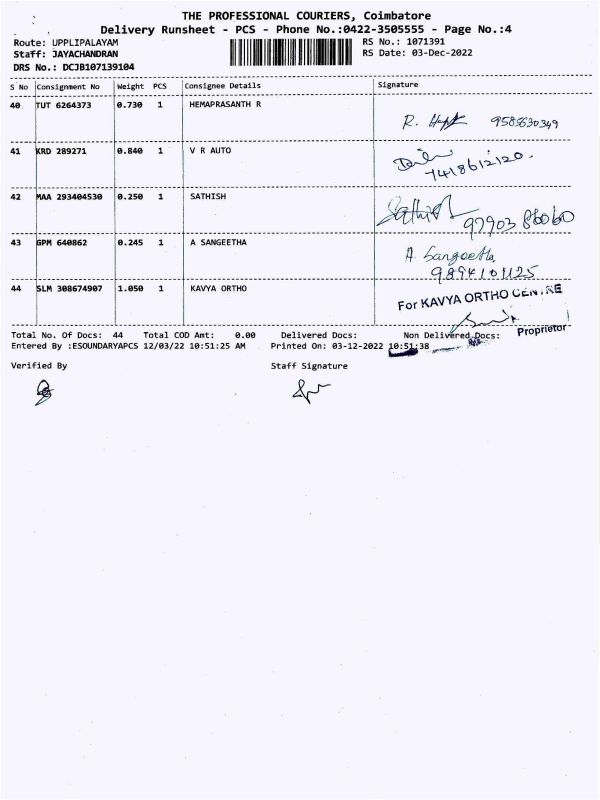 THE PROFESSIONAL COURIERS, Coimbatore
Delivery Runsheet - PCS - Phone No.:0422-3505555 - Page No.:4
Route: UPPLIPALAYAM RS No.: 1071391
Staff: JAYACHANDRAN RS Date: 03-Dec-2022
DRS No.: DCJB107139104
S No Consignment No Weight PCS Consignee Details Signature
40 TUT 6264373 0.730 1 HEMAPRASANTH R
R. 9585630349
41 KRD 289271 0.840 1 V R AUTO
7418612120.
42 MAA 293404530 0.250 1 SATHISH
Sathish 97903 86060
43 GPM 640862 0.245 1 A SANGEETHA
A. Sangeetha
9894101125
44 SLM 308674907 1.050 1 KAVYA ORTHO
For KAVYA ORTHO CENTRE
Proprietor
Total No. Of Docs: 44 Total COD Amt: 0.00 Delivered Docs: Non Delivered Docs:
Entered By :ESOUNDARYAPCS 12/03/22 10:51:25 AM Printed On: 03-12-2022 10:51:38
Verified By Staff Signature